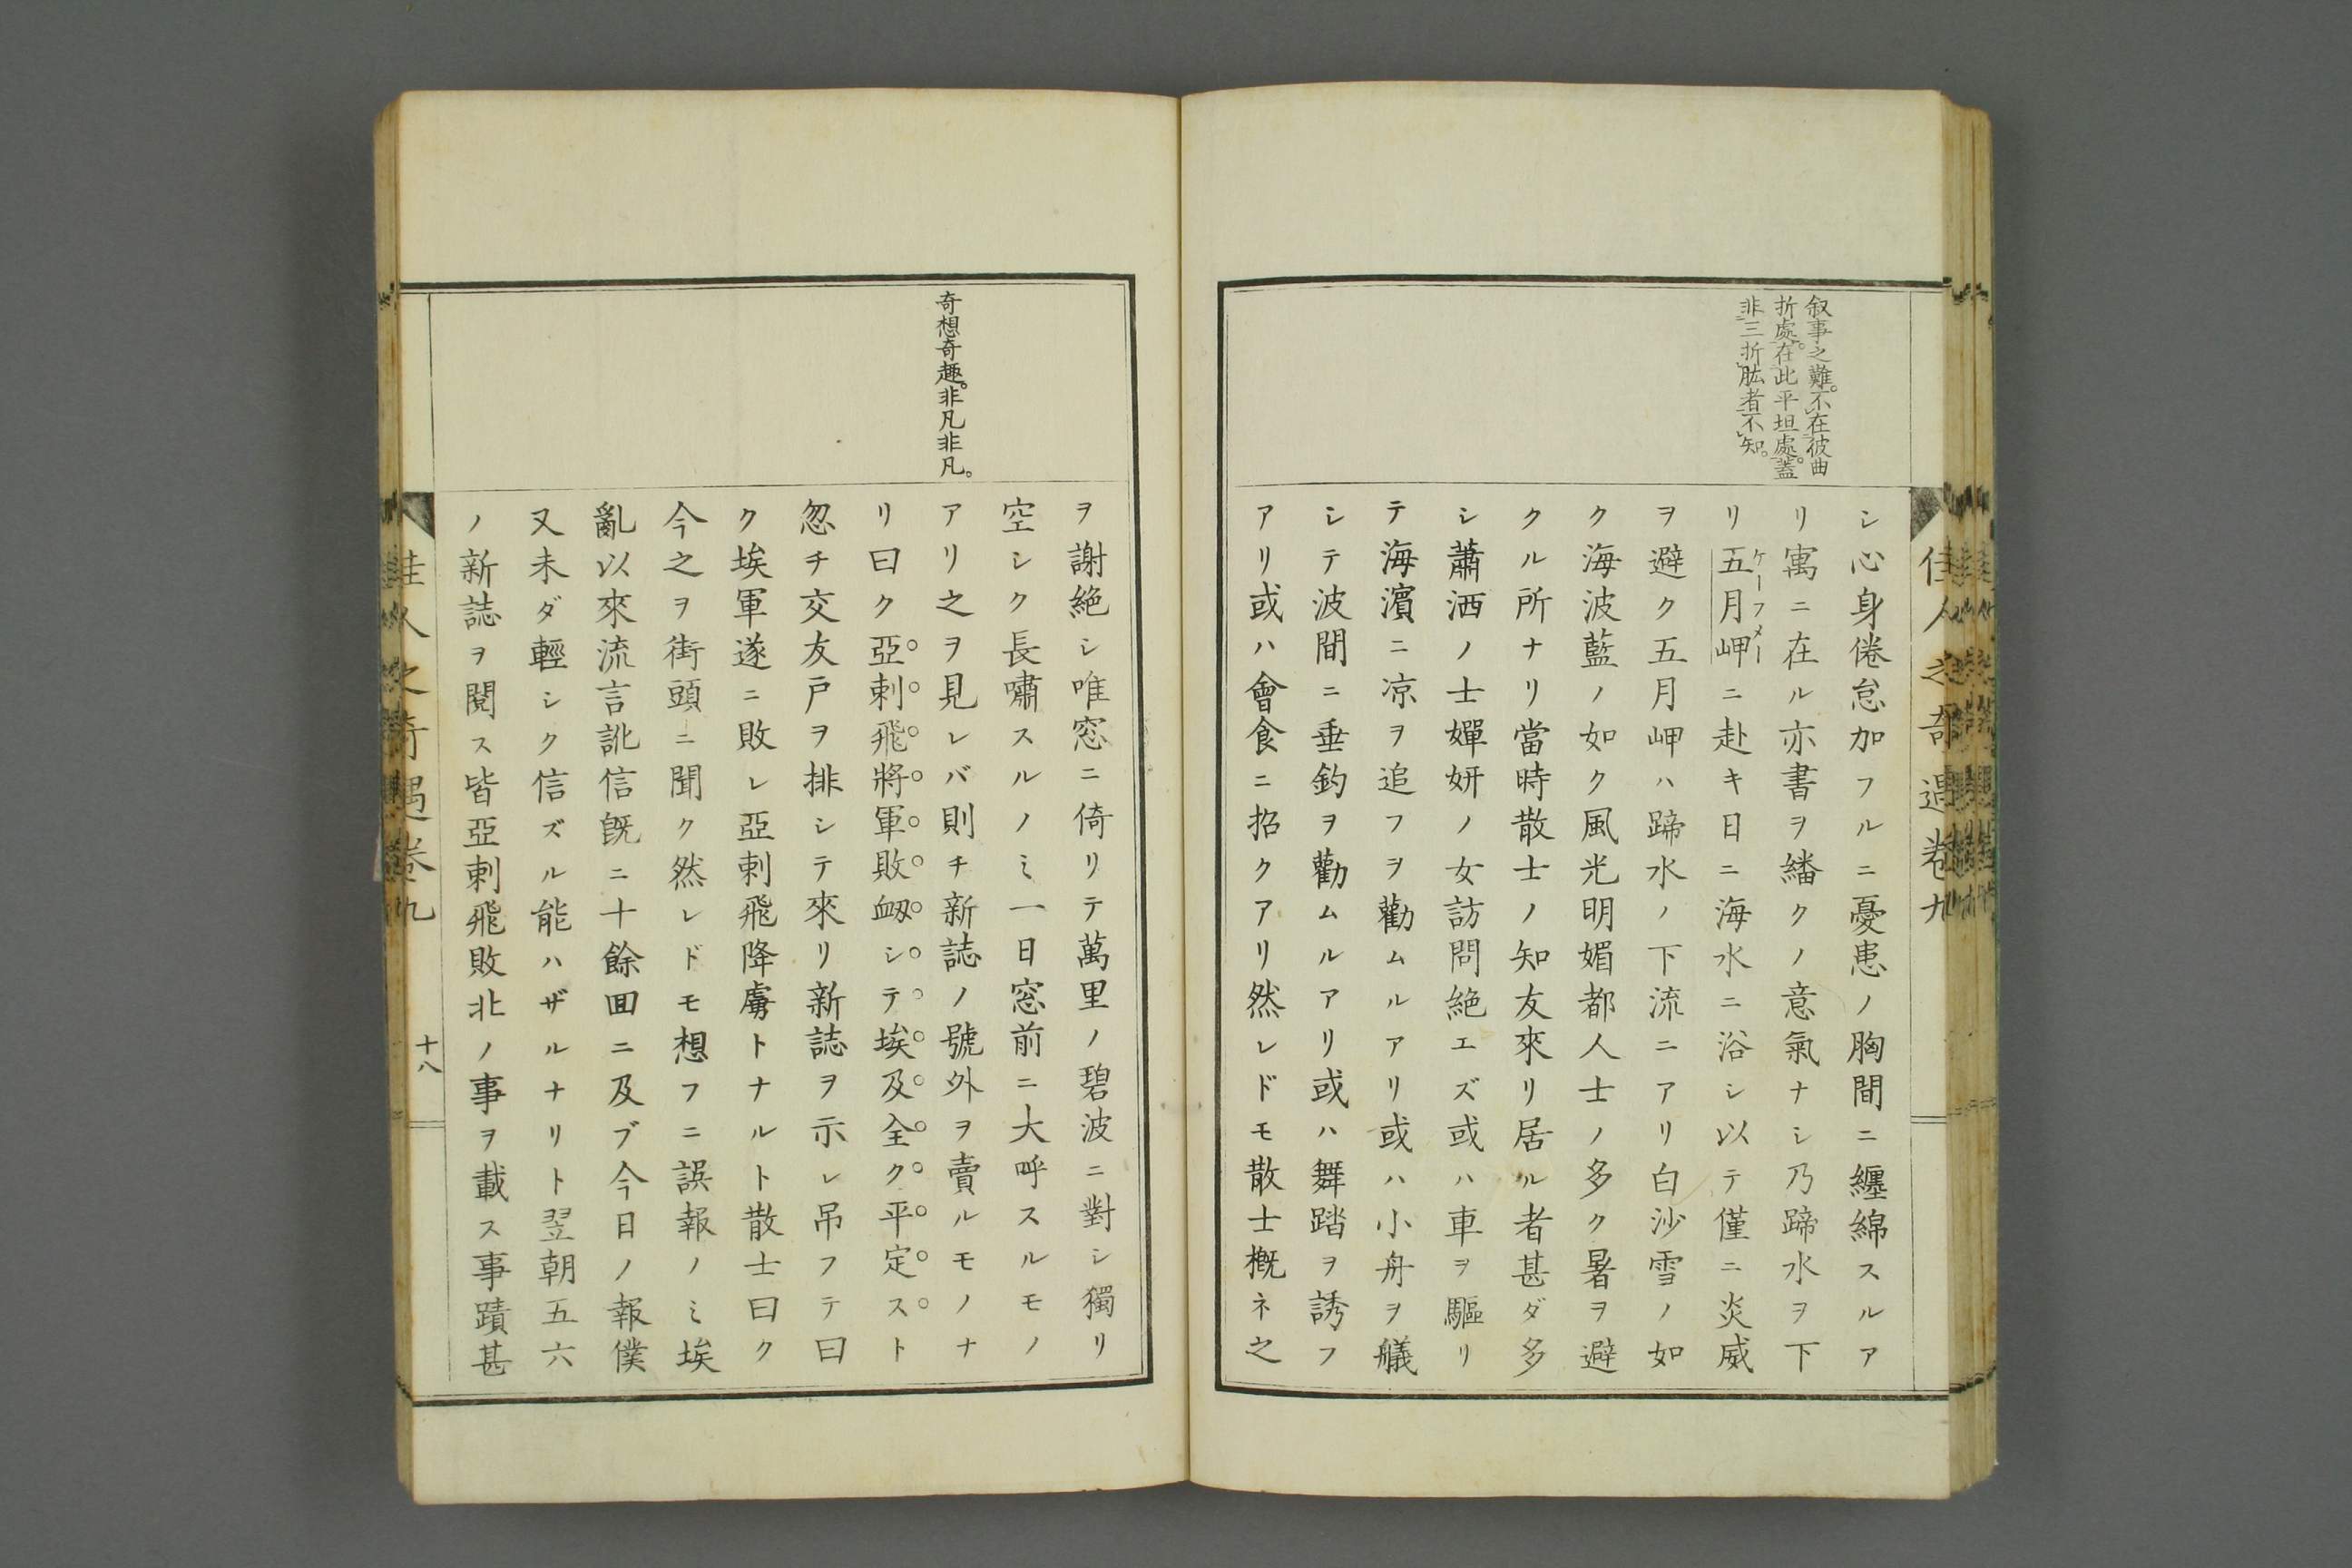 佳人之奇遇卷九
叙事之難。不在彼曲
折處。在此平坦處。蓋
非三折肱者不知。
シ心身倦怠加フルニ憂患ノ胸間ニ纏綿スルア
リ寓ニ在ル亦書ヲ繙クノ意氣ナシ乃蹄水ヲ下
リ五月岬ニ赴キ日ニ海水ニ浴シ以テ僅ニ炎威
ケーフメー
ヲ避ク五月岬ハ蹄水ノ下流ニアリ白沙雪ノ如
ク海波藍ノ如ク風光明媚都人士ノ多ク暑ヲ避
クル所ナリ當時散士ノ知友來リ居ル者甚ダ多
シ蕭洒ノ士嬋妍ノ女訪問絶エズ或ハ車ヲ驅リ
テ海濱ニ凉ヲ追フヲ勸ムルアリ或ハ小舟ヲ艤
シテ波間ニ垂釣ヲ勸ムルアリ或ハ舞踏ヲ誘フ
アリ或ハ會食ニ招クアリ然レドモ散士概ネ之
奇想奇趣。非凡非凡。
ヲ謝絶シ唯窓ニ倚リテ萬里ノ碧波ニ對シ獨リ
空シク長嘯スルノミ一日窓前ニ大呼スルモノ
アリ之ヲ見レバ則チ新誌ノ號外ヲ賣ルモノナ
リ曰ク亞剌飛將軍敗衄シテ埃及全ク平定スト
忽チ交友戸ヲ排シテ來リ新誌ヲ示レ吊フテ曰
ク埃軍遂ニ敗レ亞剌飛降虜トナルト散士曰ク
今之ヲ街頭ニ聞ク然レドモ想フニ誤報ノミ埃
亂以來流言訛信既ニ十餘囬ニ及ブ今日ノ報僕
又未ダ輕シク信ズル能ハザルナリト翌朝五六
ノ新誌ヲ閲ス皆亞剌飛敗北ノ事ヲ載ス事蹟甚
佳人之奇遇卷九
十八